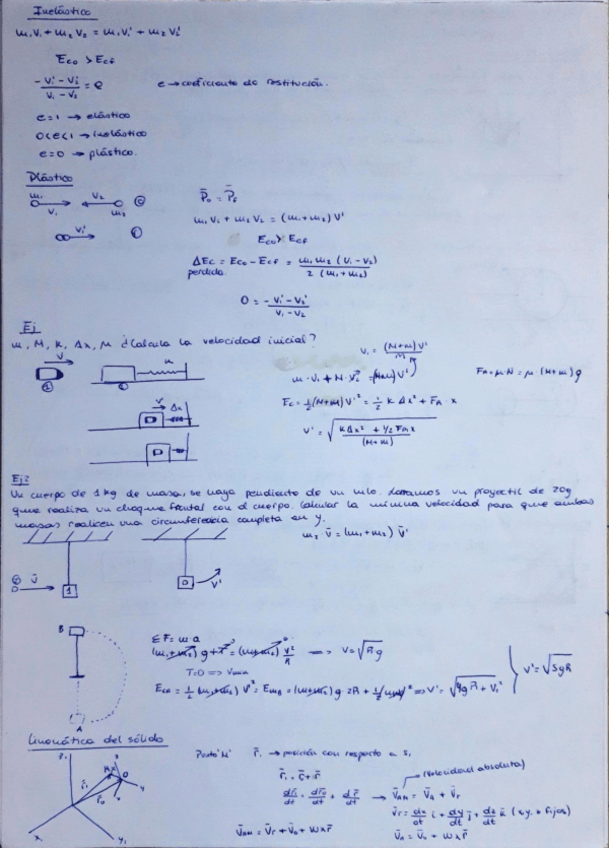 Inelástico
m₁V₁ + m₂V₂ = m₁V₁' + m₂V₂'
Eco > Ecf
-V₁' - V₂' / V₁ - V₂ = e
e → coeficiente de restitución.
e = 1 → elástico
0 < e < 1 → inelástico
e = 0 → plástico.
Plástico
m₁ V₁ V₂ m₂
V₁'
P̄₀ = P̄f
m₁V₁ + m₂V₂ = (m₁+m₂)V'
Eco > Ecf
ΔEc = Eco - Ecf = m₁m₂(V₁-V₂) / 2(m₁+m₂)
perdida
0 = -V₁' - V₂' / V₁ - V₂
Ej
m, M, K, Δx, μ ¿Calcula la velocidad inicial?
V₁ = (M+m)V' / m
Ec = ½(M+m)V'² = ½ K Δx² + FR · x
FR = μ·N = μ·(M+m)g
V Δx
Ej2
Un cuerpo de 1kg de masa, se haya pendiente de un hilo. Lanzamos un proyectil de 20g
que realiza un choque frontal con el cuerpo. Calcular la mínima velocidad para que ambas
masas realicen una circunferencia completa en y.
m₂ · ū = (m₁+m₂) V̄'
V'
B
ΣF = m a
(m₁+m₂)g + T = (m₁+m₂) V²/R ⟹ V = √Rg
T=0 ⟹ Vmin
V' = √5gR
A
Cinemática del sólido
Punto 'M' r̄₁ → posición con respecto a S₁
(velocidad absoluta)
dr̄₁/dt = dr̄₀/dt + dr̄/dt
V̄r = dx/dt i + dy/dt j + dz/dt k (xy, + fijos)